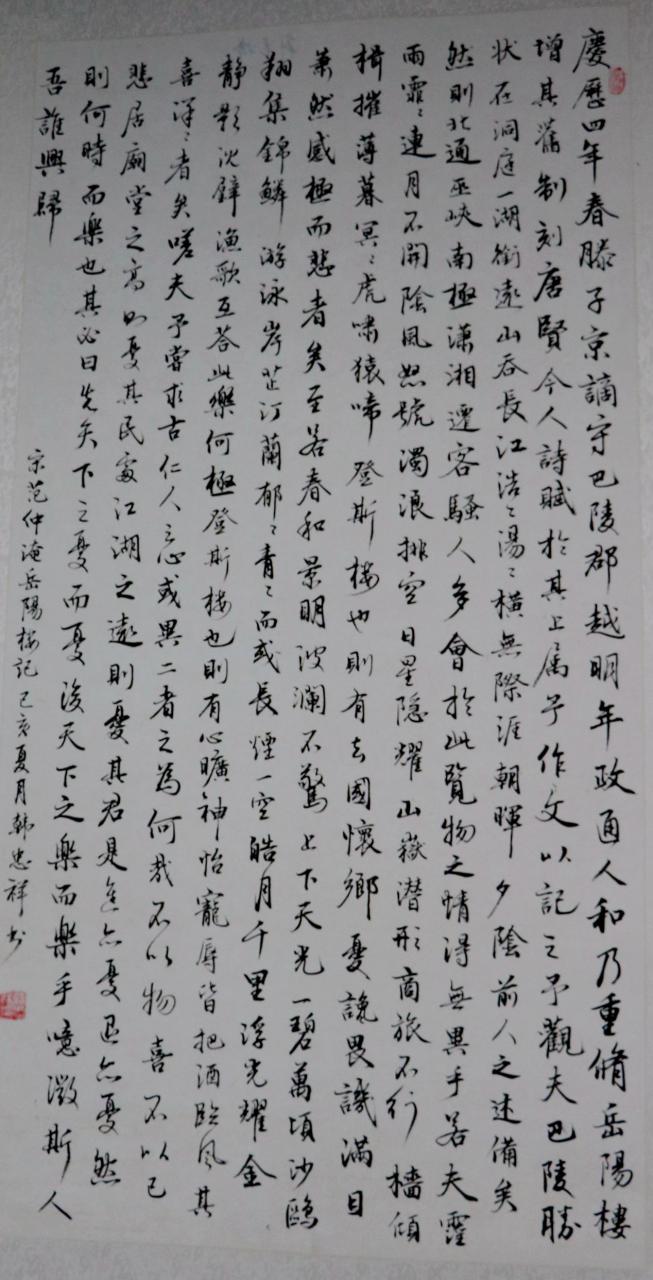 慶歷四年春滕子京謫守巴陵郡越明年政通人和乃重脩岳陽樓
增其舊制刻唐賢今人詩賦於其上属予作文以記之予觀夫巴陵勝
状在洞庭一湖銜遠山吞長江浩〻湯〻橫無際涯朝暉夕陰前人之述備矣
然則北通巫峽南極瀟湘遷客騷人多會於此覽物之情得無異乎若夫霪
雨霏〻連月不開陰風怒號濁浪排空日星隱耀山嶽潛形商旅不行檣傾
楫摧薄暮冥〻虎嘯猿啼登斯樓也則有去國懷鄉憂讒畏譏滿目
蕭然感極而悲者矣至若春和景明波瀾不驚上下天光一碧萬頃沙鷗
翔集錦鱗游泳岸芷汀蘭郁〻青〻而或長煙一空皓月千里浮光耀金
静影沈璧漁歌互答此樂何極登斯樓也則有心曠神怡寵辱皆把酒臨風其
喜洋〻者矣嗟夫予嘗求古仁人之心或異二者之為何哉不以物喜不以己
悲居廟堂之高則憂其民處江湖之遠則憂其君是進亦憂退亦憂然
則何時而樂也其必曰先天下之憂而憂後天下之樂而樂乎噫微斯人
吾誰與歸
宋范仲淹岳陽樓記己亥夏月韩忠祥书